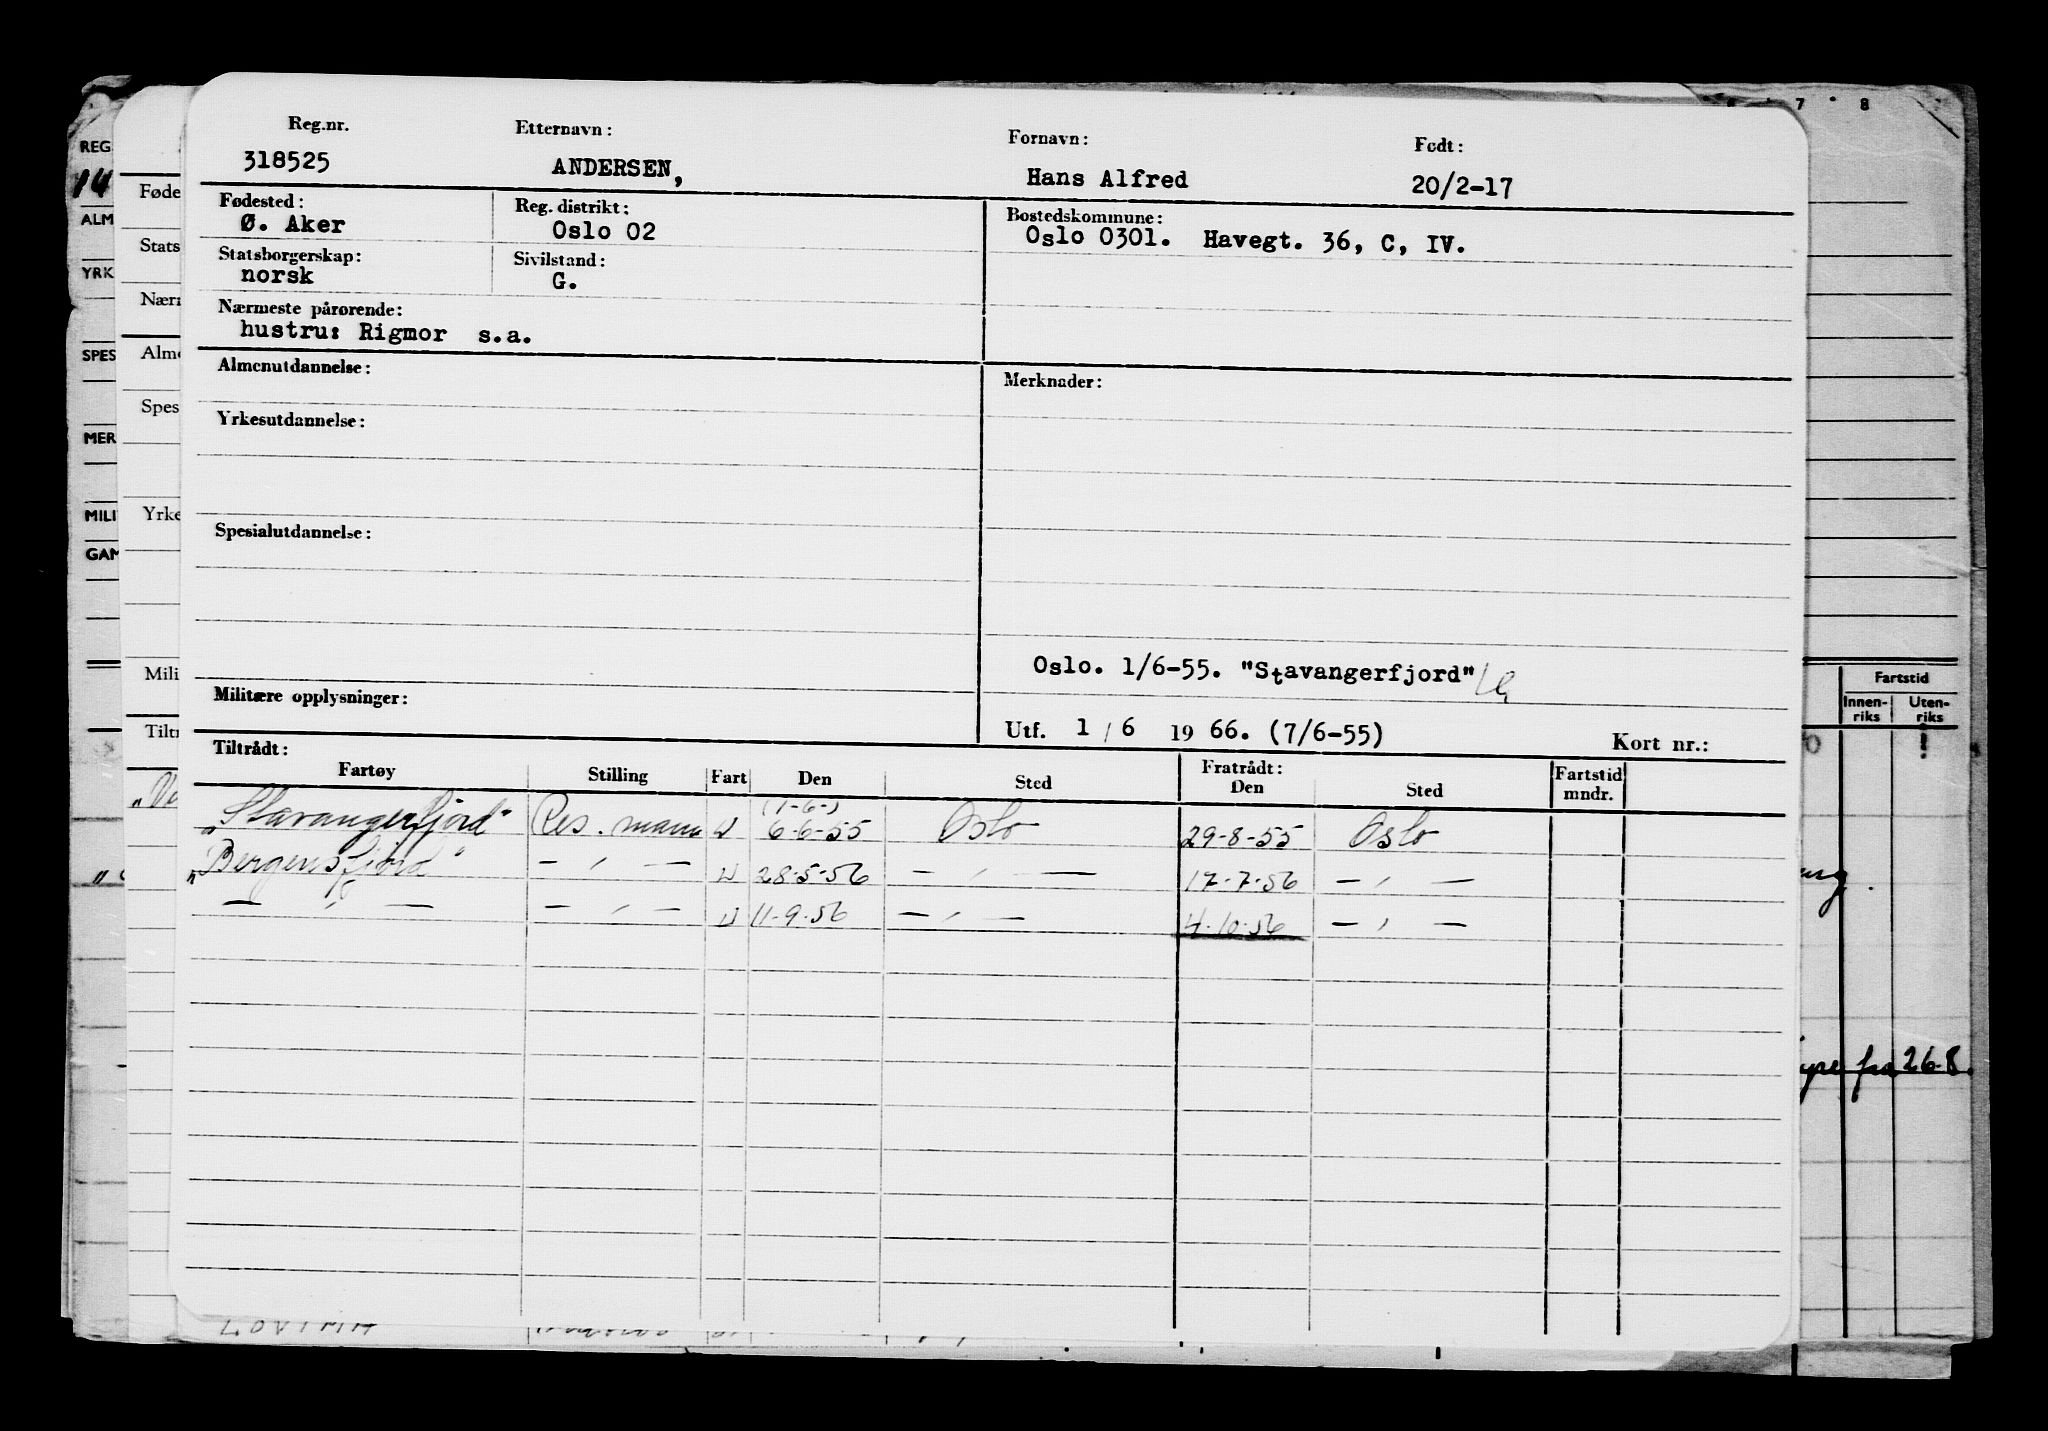 Reg.nr. Etternavn: Fornavn: Født:
318525 ANDERSEN, Hans Alfred 20/2-17
Fødested: Reg. distrikt: Bostedskommune:
Ø. Aker Oslo 02 Oslo 0301. Havegt. 36, C, IV.
Statsborgerskap: Sivilstand:
norsk G.
Nærmeste pårørende:
hustru: Rigmor s.a.
Almenutdannelse: Merknader:
Yrkesutdannelse:
Spesialutdannelse:
Oslo. 1/6-55. "Stavangerfjord"
Militære opplysninger:
Utf. 1 / 6 19 66. (7/6-55) Kort nr.:
Tiltrådt: Fratrådt: Fartstid
Fartøy Stilling Fart Den Sted Den Sted mndr.
(1-6-)
"Stavangerfjord" Res. mann U 6-6-55 Oslo 29-8-55 Oslo
"Bergensfjord" — " — U 28-5-56 — " — 17-7-56 — " —
— " — — " — U 11-9-56 — " — 4-10-56 — " —
REG
14
ALM
YRK
SPES
MER
MILI
GAM
Føde
Stats
Nærm
Alme
Spes
Yrke
Mili
Tiltr
7 8
Fartstid
Innen-riks Uten-riks
fra 26-8.